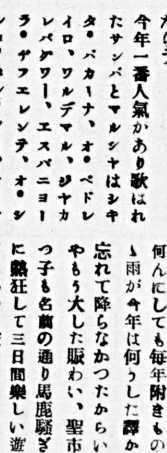 今年一番人氣かあり歌はれ
たサンバとマルシヤはシキ
タ・バカーナ、オ・ペドレ
イロ、ワルデマル、ジヤカ
レパグワー、エスパニヨー
ラ・ヂフエレンテ、オ・シ
何んにしても毎年附きもの
ゝ雨が今年は何うした譯か
忘れて降らなかつたからい
やもう大した賑わい、聖市
つ子も名前の通り馬鹿騒ぎ
に熱狂して三日間樂しい遊